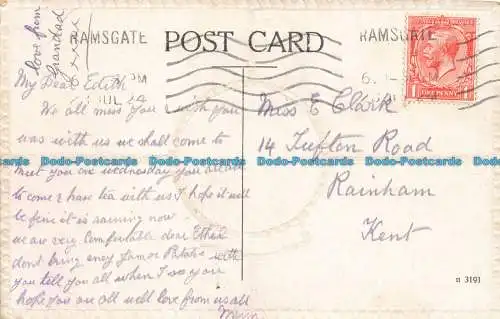 love from
Grandad
RAMSGATE
POST CARD
RAMSGATE
PM
JUL 24
ONE PENNY
My Dear Edith
We all miss you & wish you
was with us we shall come to
meet you one wednesday you are all
to come & have tea with us I hope it will
be fine it is raining now
we are very Comfortable dear Ethel
dont bring eney Jam or Potatos with
you tell you all when I see you
hope you are all well love from us all
Miss E Clark
14 Tufton Road
Rainham
Kent
Dodo-Postcards Dodo-Postcards Dodo-Postcards Dodo-Postcards
Dodo-Postcards Dodo-Postcards Dodo-Postcards Dodo-Postcards
3191